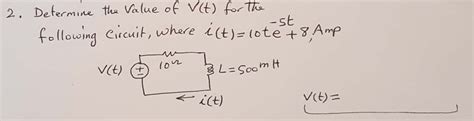 2. Determine the Value of V(t) for the
following Circuit, where i(t)=10te^-5t+8, Amp
10Ω
V(t) + L=500mH
← i(t)
V(t)=